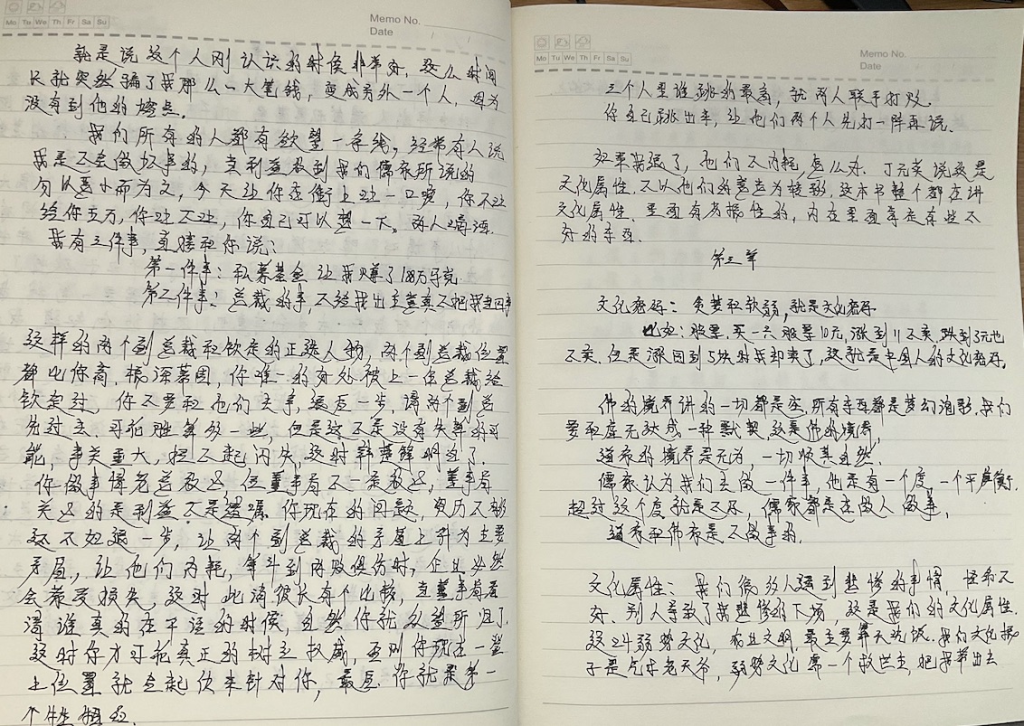 Memo No.
Date
Mo Tu We Th Fr Sa Su
就是说这个人刚认识的时候非常好，这么时间
长就突然骗了我那么一大笔钱，变成另外一个人，因为
没有到他的燃点。
我们所有的人都有欲望一条线，经常有人说
我是不会做坏事的，当利益教到我们儒家所说的
勿以恶小而为之，今天让你在街上吐一口痰，你不吐
给你五万，你吐不吐，你自己可以想一下。两人喝酒
我有三件事，直接和你说：
第一件事：私募基金让我赚了180万
第二件事：总裁的事，不给我出主意真不把我当回事
这样的两个副总裁和钦定的正选人物，两个副总裁位置
都比你高，根深蒂固，你唯一的好处被上一任总裁给
钦定过，你不要和他们去争，退后一步，让两个副总
先过去，可能胜算多一些，但是这不是没有失算的可
能，事关重大，担不起闪失，这时韩楚解明白了
你做事得老总教，但董事有不一定教，董事有
关的是利益不是遗嘱，你现在的问题，资历不够
还不如退一步，让两个副总裁的矛盾上升为主要
矛盾，让他们内耗，争斗到两败俱伤时，企业必然
会蒙受损失，这时此消彼长有个比较，当董事有看
清谁真的在干活的时候，自然你就众望所归了，
这时你才可能真正的树立权威，否则你现在一坐
上位置就会起伙来针对你，最后你就是第一
个牺牲
Memo No.
Date
Mo Tu We Th Fr Sa Su
三个人里谁跳的最高，就两人联手打败．
你自己跳出来，让他们两个人先打一阵再说．
如果我强了，他们不内耗，怎么办．丁元英说这是
文化属性．不以他们的意志为转移，这本书整个都在讲
文化属性．里面有劣根性的，内在里面存在有些不
好的东西．
第三章
文化密码：贪婪和软弱，就是文化密码
比如：股票，买一只股票10元，涨到11不卖，跌到3元也
不卖．但是涨回到5块时却卖了，这就是中国人的文化密码．
佛的境界讲的一切都是空，所有东西都是梦幻泡影，我们
要和虚无达成一种默契，这是佛的境界，
道家的境界是无为，一切顺其自然．
儒家认为我们去做一件事，他是有一个度，一个平衡．
超过这个度就是不及，儒家都是去做人做事，
道家和佛家是不做事的．
文化属性：我们很多人遇到悲惨的事情，怪命不
好．别人导致了我悲惨的下场，这是我们的文化属性．
这叫弱势文化，
子是气乐老天爷，弱势文化需一个救世主，把我带出去